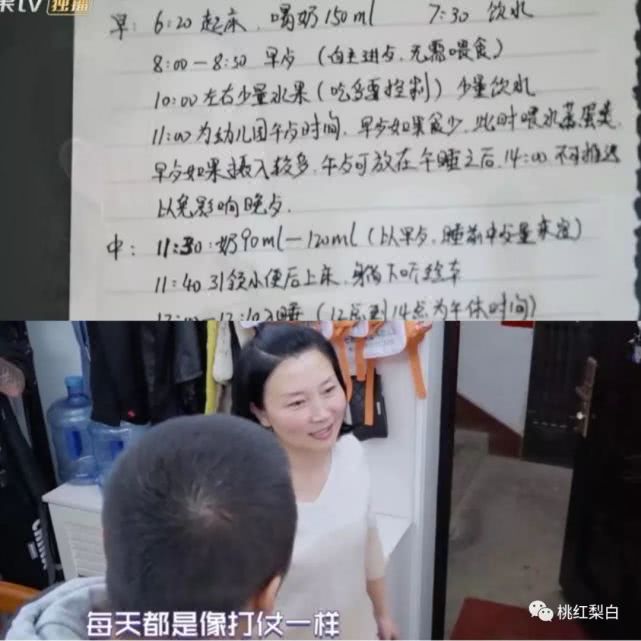 果tv 独播
早: 6:20 起床, 喝奶 150 ml 7:30 饮水
8:00-8:30 早点 (自主进点, 无需喂食)
10:00 左右少量水果 (吃多需控制) 少量饮水
11:00 为幼儿园午点时间, 早点如果食少, 此时喂水蒸蛋羹
早点如果摄入较多, 午点可放在午睡之后, 14:00 不可推迟
以免影响晚点.
中: 11:30: 奶90ml-120ml (以早点, 睡前中交量来定)
11:40 引领小便后上床,
入睡 (12点到14点为午休时间)
每天都是像打仗一样
桃红梨白